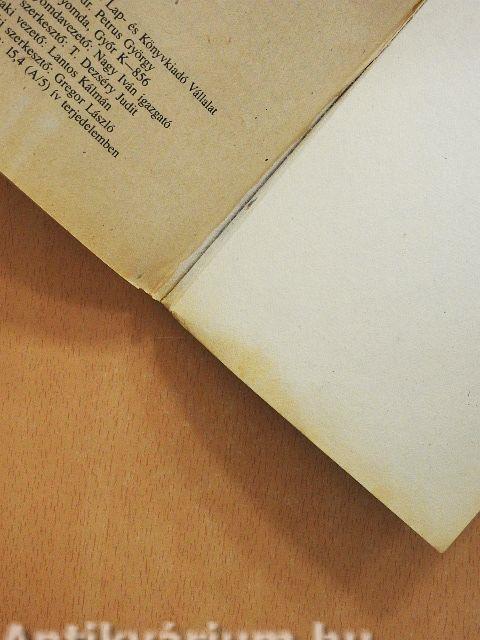 Lap- és Könyvkiadó Vállalat
Petrus György
Győr K—856
Nagy Iván igazgató
szerkesztő: T. Dezséry Judit
vezető: Lantos Kálmán
szerkesztő: Gregor László
15,4 (A/5) ív terjedelemben
Antikvárium.hu